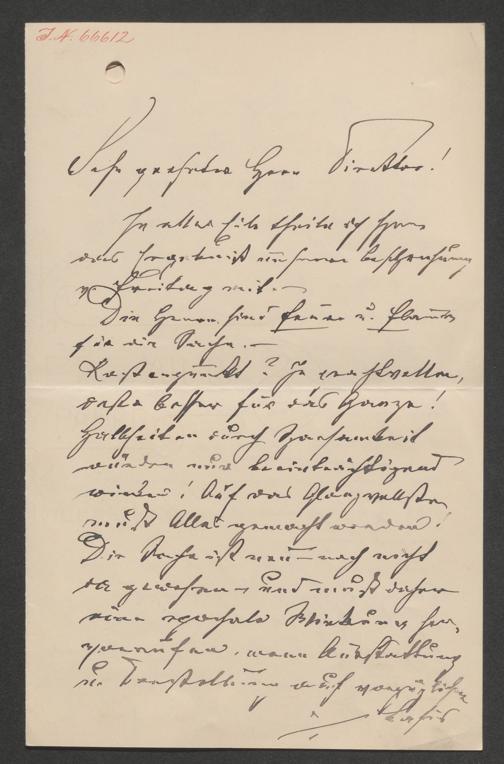 J.N. 66612
Sehr geehrter Herr Direktor!
In aller Eile theile ich Ihnen
das Ergebniß unserer Besprechung
v. Freitag mit. –
Die Herren sind Feuer u. Flamme
für die Sache. –
Kostenpunkt? Je prachtvoller,
desto besser für das Ganze!
Halbheiten durch Sparsamkeit
würden nur beeinträchtigend
wirken! Auf das Glanzvollste
muß Alles gemacht werden!
Die Sache ist neu – noch nicht
da gewesen – und muß daher
eine epochale Wirkung her-
vorrufen, wenn Ausstattung
u. Darstellung auf vorzüglicher
Basis